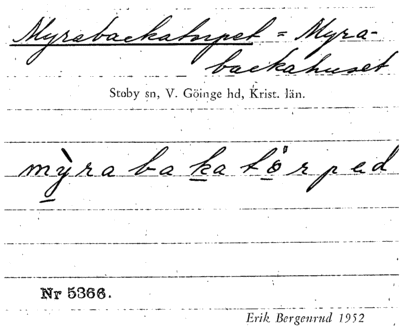 Myrabackatorpet = Myra-
backahuset
Stoby sn, V. Göinge hd, Krist. län.
mỳrabakatö̀rped
Nr 5366.
Erik Bergenrud 1952